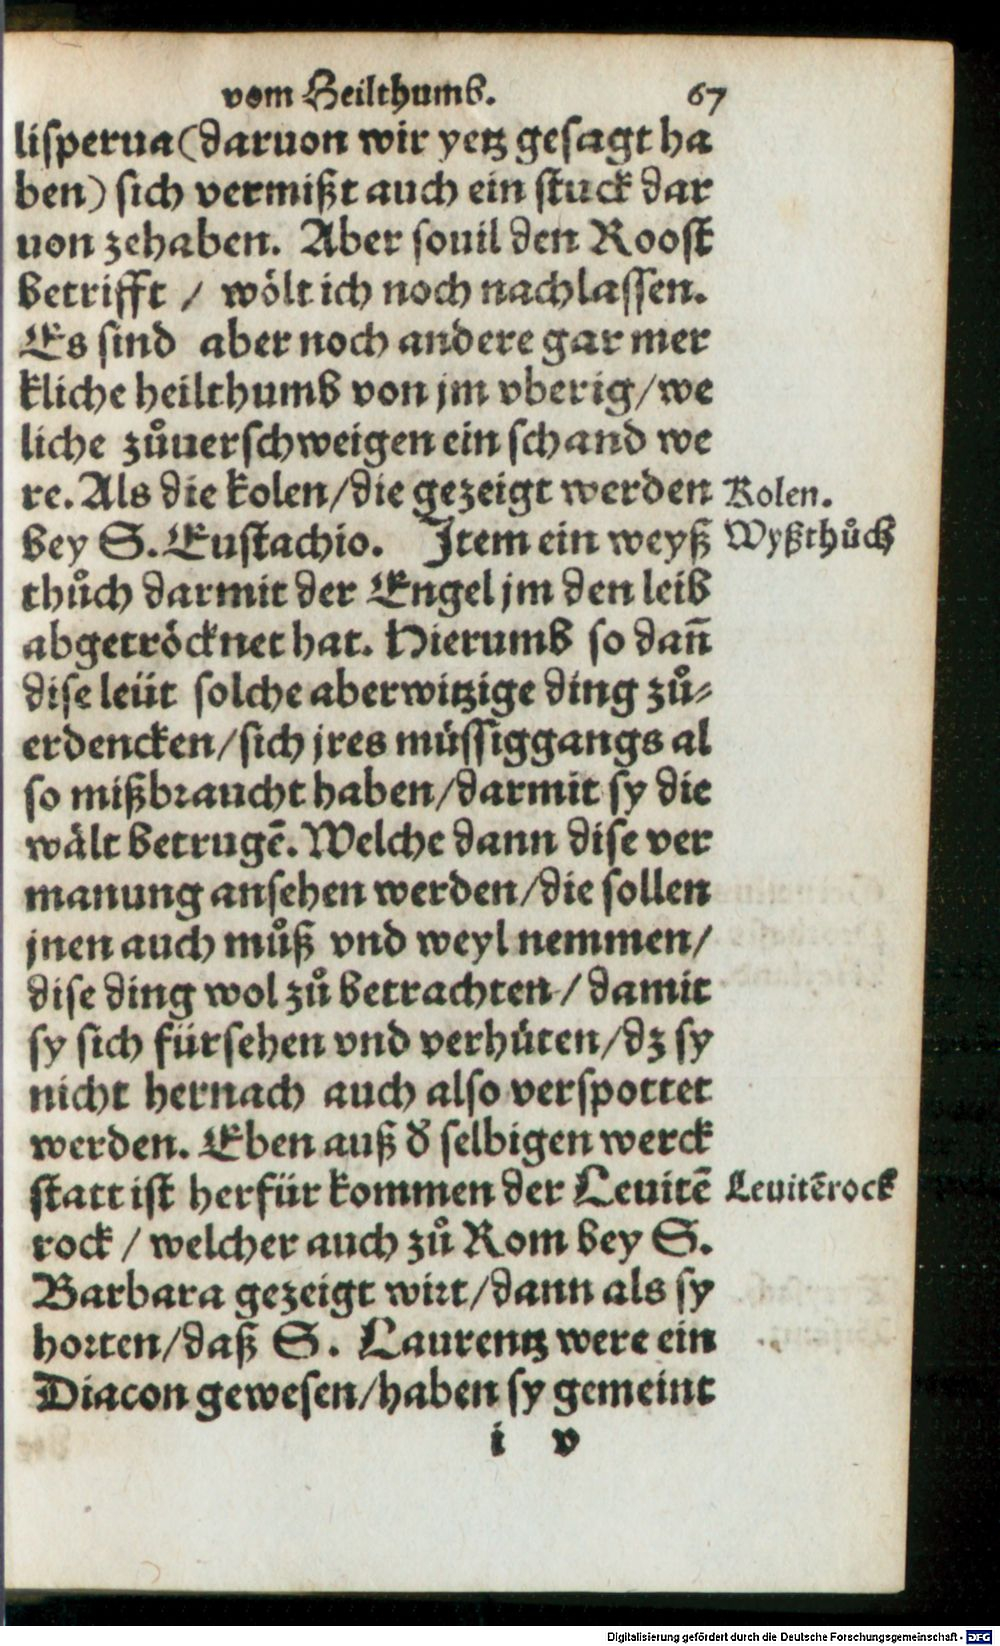 vom Heilthumb. 67
lisperua (daruon wir yetz gesagt ha
ben) sich vermißt auch ein stuck dar
uon zehaben. Aber souil den Roost
betrifft / wölt ich noch nachlassen.
Es sind aber noch andere gar mer
kliche heilthumb von jm vberig / we
liche zůuerschweigen ein schand we
re. Als die kolen / die gezeigt werden
Kolen.
bey S. Eustachio. Item ein weyß
Wyßthůch
thůch darmit der Engel jm den leib
abgetröcknet hat. Hierumb so dañ
dise leüt solche aberwitzige ding zů⸗
erdencken / sich jres müssiggangs al
so mißbraucht haben / darmit sy die
wält betrugē. Welche dann dise ver
manung ansehen werden / die sollen
jnen auch můß vnd weyl nemmen /
dise ding wol zů betrachten / damit
sy sich fürsehen vnd verhüten / dz sy
nicht hernach auch also verspottet
werden. Eben auß d̃ selbigen werck
statt ist herfür kommen der Leuitē
Leuitērock
rock / welcher auch zů Rom bey S.
Barbara gezeigt wirt / dann als sy
horten / daß S. Laurentz were ein
Diacon gewesen / haben sy gemeint
i v
Digitalisierung gefördert durch die Deutsche Forschungsgemeinschaft - DFG